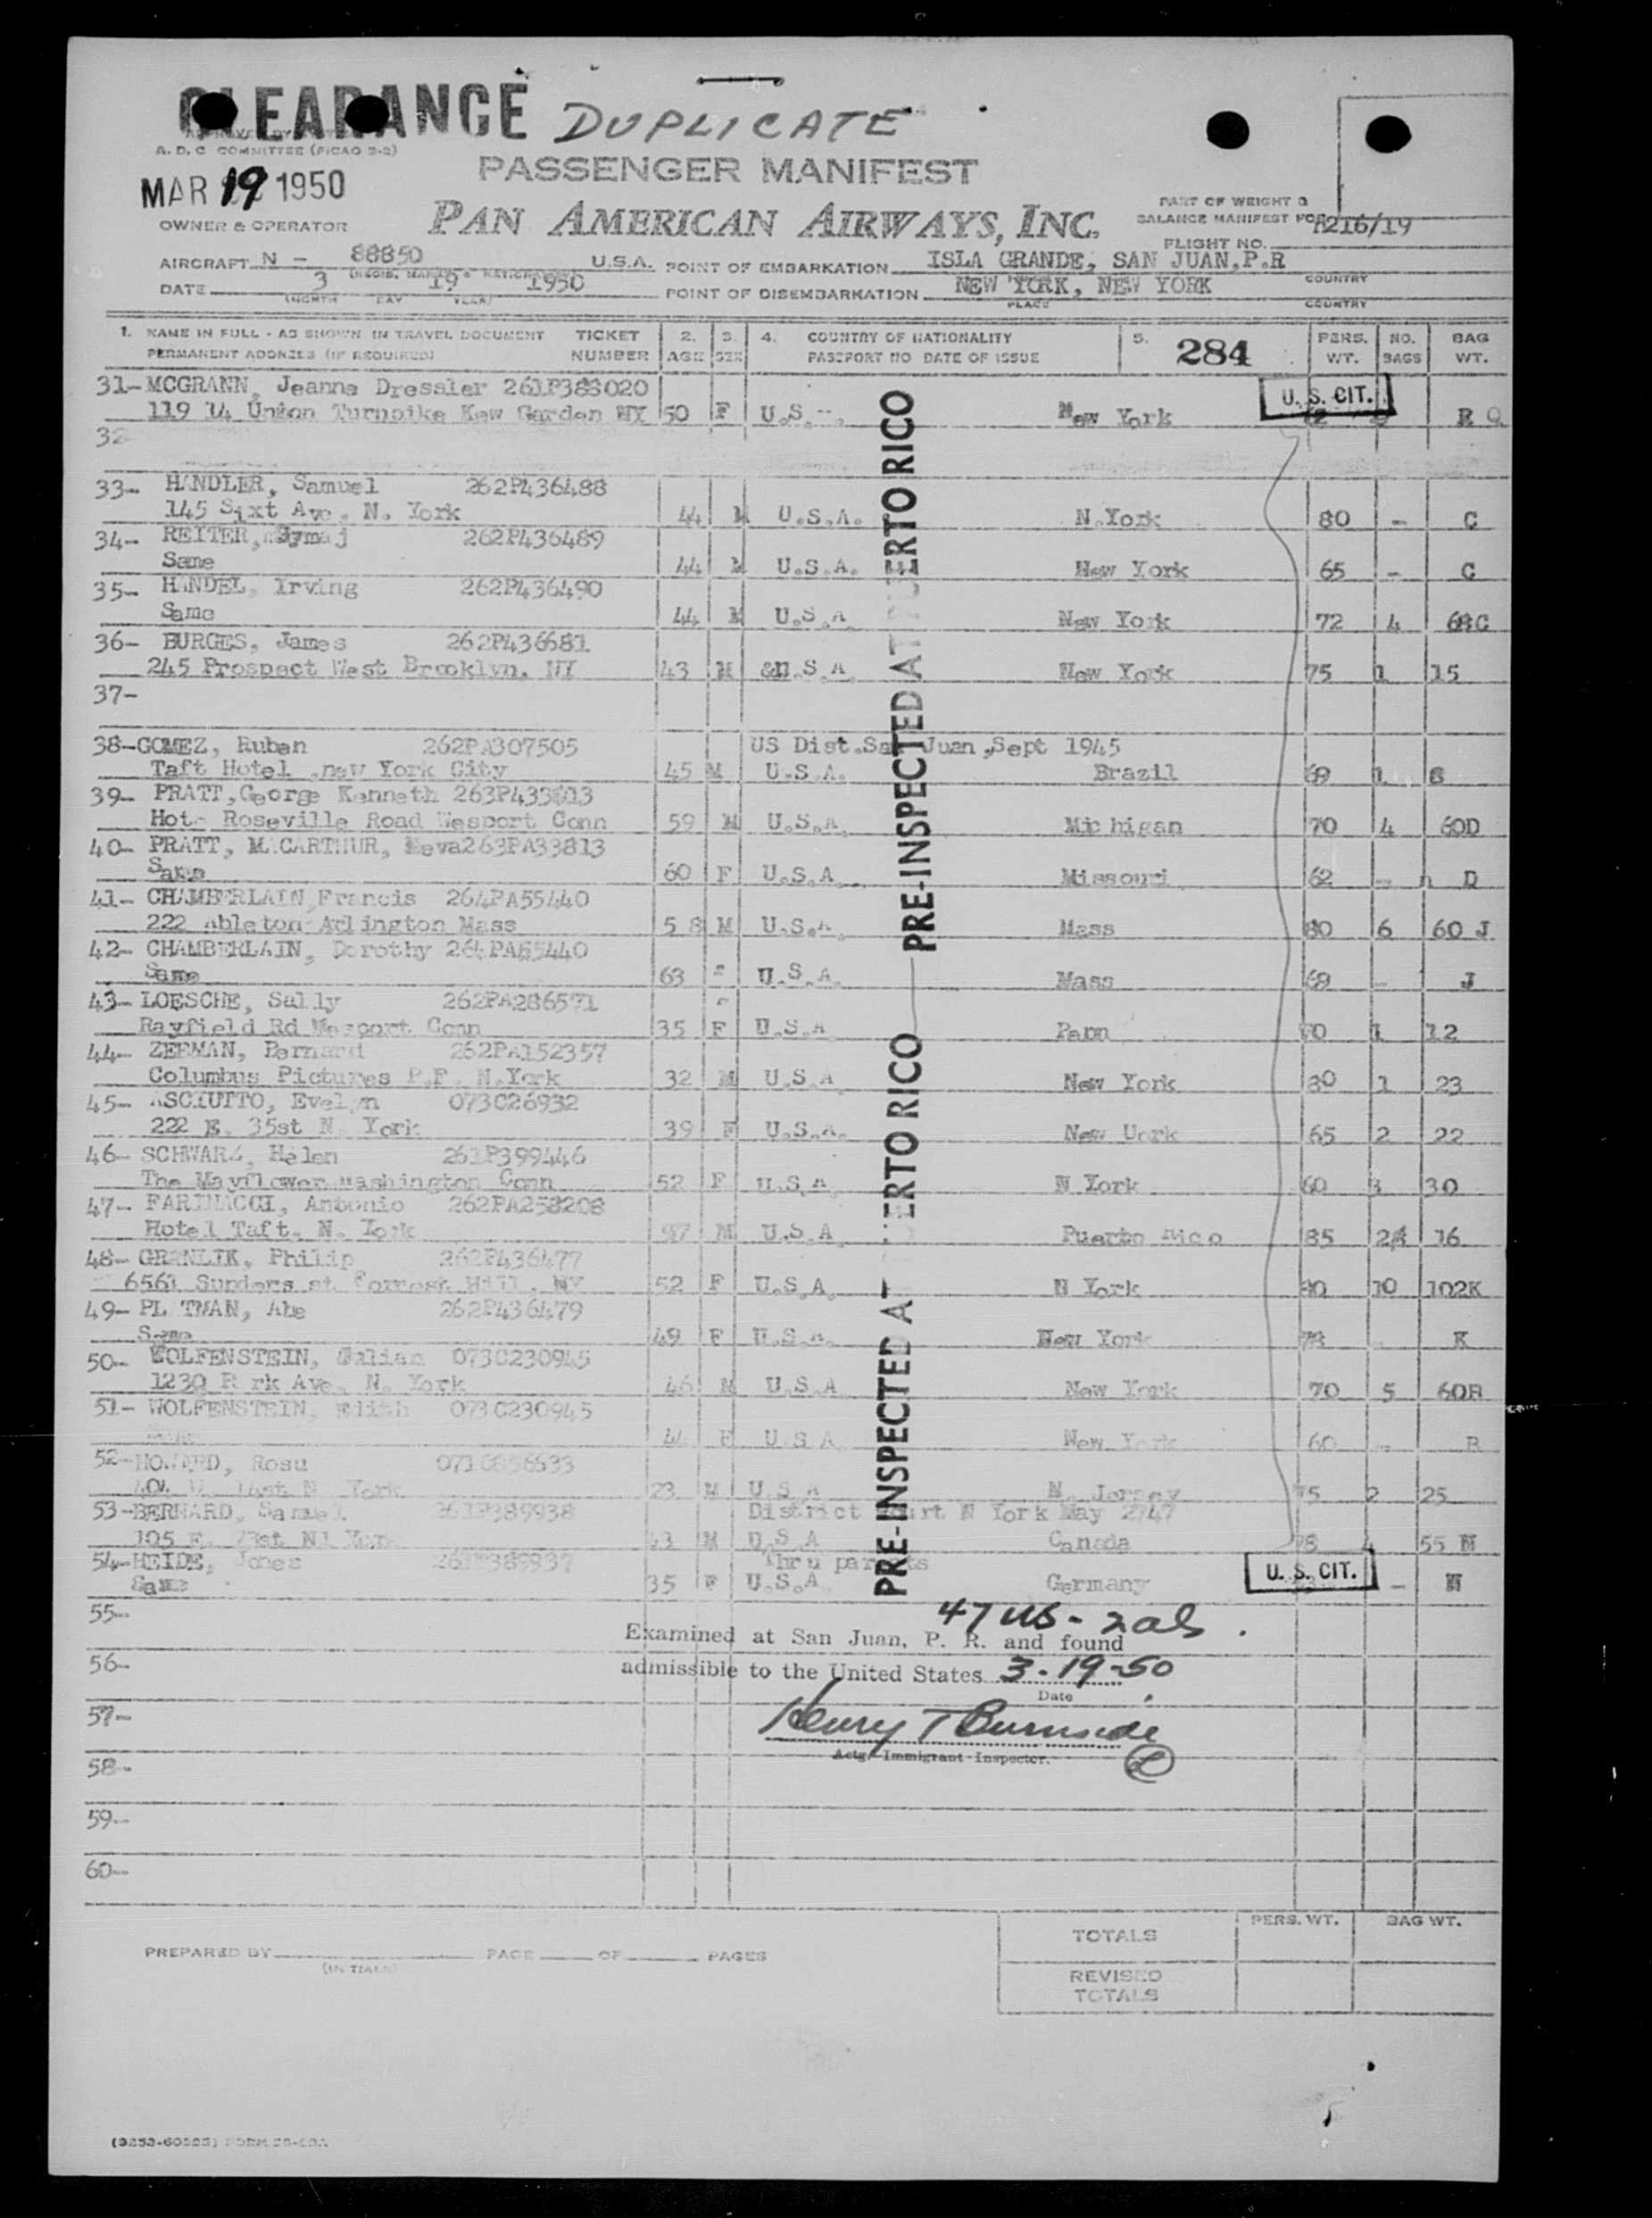 CLEARANCE DUPLICATE
A. D. C COMMITTEE (PICAO 2-2)
PASSENGER MANIFEST
MAR 19 1950
PART OF WEIGHT &
BALANCE MANIFEST FOR
OWNER & OPERATOR PAN AMERICAN AIRWAYS, INC.
FLIGHT NO. R216/19
AIRCRAFT N - 88850 U.S.A. POINT OF EMBARKATION ISLA GRANDE, SAN JUAN,P.R
COUNTRY
DATE 3 19 1950 POINT OF DISEMBARKATION NEW YORK, NEW YORK
(MONTH DAY YEAR) PLACE COUNTRY
1. NAME IN FULL - AS SHOWN IN TRAVEL DOCUMENT TICKET 2. 3. 4. COUNTRY OF NATIONALITY 5. 284 PERS. NO. BAG
PERMANENT ADDRESS (IF REQUIRED) NUMBER AGE SEX PASSPORT NO DATE OF ISSUE WT. BAGS WT.
31-MCGRANN, Jeanne Dressler 261P388020 U. S. CIT.
119 14 Union Turnpike Kew Garden NY 50 F U.S. New York
32-
33- HANDLER, Samuel 262P436488
145 Sixt Ave. N. York 44 M U.S.A. N.York 80 - C
34- REITER, 262P436489
Same 44 M U.S.A. New York 65 - C
35- HANDEL, Irving 262P436490
Same 44 M U.S.A New York 72 4 68C
36- BURGES, James 262P436681
245 Prospect West Brooklyn, NY 43 M U.S.A New York 75 1 15
37-
38-GOMEZ, Ruben 262PA307505 US Dist.San Juan,Sept 1945
Taft Hotel .new York City 45 M U.S.A. Brazil 69 1 8
39- PRATT,George Kenneth 263P433813
Hot- Roseville Road Wesport Conn 59 M U.S.A. Michigan 70 4 60D
40- PRATT, MACARTHUR, Neva263PA33813
Same 60 F U.S.A. Missouri 62 - D
41- CHAMBERLAIN,Francis 264PA55440
222 Ableton Arlington Mass 58 M U.S.A. Mass 80 6 60 J
42- CHAMBERLAIN, Dorothy 264PA55440
Same 63 U.S.A. Mass 68 - J
43- LOESCHE, Sally 262PA286571
Rayfield Rd Wesport Conn 35 F U.S.A Penn 70 1 12
44- ZEEMAN, Bernard 262PA152357
Columbus Pictures P.F. N.York 32 M U.S.A New York 80 1 23
45- ASCIUTTO, Evelyn 073026932
222 E. 35st N. York 39 F U.S.A. New Uork 65 2 22
46- SCHWARZ, Helen 261P399446
The Mayflower Washington Conn 52 F U.S.A N York 60 3 30
47- FARINACCI, Antonio 262PA258208
Hotel Taft. N. York M U.S.A Puerto Rico 85 2 16
48- GRANLIK, Philip 262P436477
6561 Sunders st. Forrest Hill. NY 52 F U.S.A. N York 80 10 102K
49- PL TMAN, Abe 262P436479
Same 49 F U.S.A. New York 78 - K
50- WOLFENSTEIN, 0730230945
1230 P rk Ave. N. York 46 M U.S.A New York 70 5 60R
51- WOLFENSTEIN, Edith 0730230945
F U.S.A New York 60 - R
52-HOWARD, Rosu
York 23 M U.S.A N. Jersey 75 2 25
53-BERNARD, Samuel 261P389938 District Court N York May 2747
105 E. 43 M U.S.A Canada 78 4 55 N
54-HEIDE, Jones 261P389937 Thru parents
Same 35 F U.S.A. Germany U. S. CIT. - N
55-
47 US - 2 als.
Examined at San Juan, P. R. and found
56-
admissible to the United States 3-19-50
Date
57-
Henry T Burnside
Actg. Immigrant Inspector.
58-
59-
60-
PERS. WT. BAG WT.
TOTALS
PREPARED BY PAGE OF PAGES
(INITIALS)
REVISED
TOTALS
PRE-INSPECTED AT PUERTO RICO
PRE-INSPECTED AT PUERTO RICO